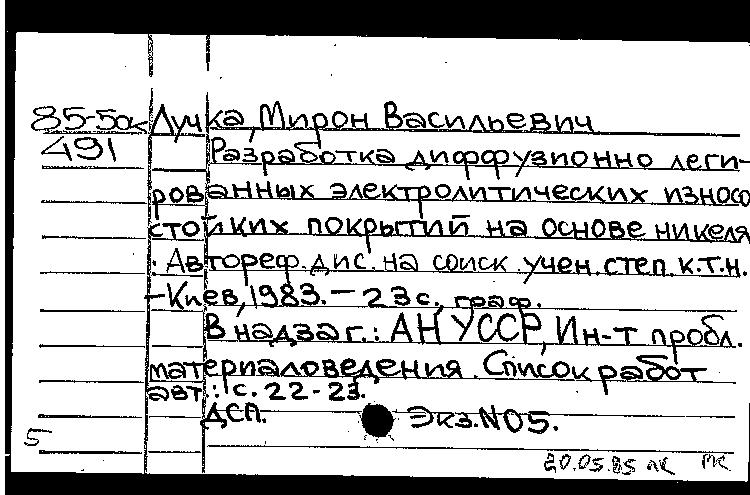 85-5дк Лучка, Мирон Васильевич
491 Разработка диффузионно леги-
рованных электролитических износо
стойких покрытий на основе никеля
: Автореф. дис. на соиск. учен. степ. к.т.н.
-Киев, 1983. - 23 с., граф.
В надзаг.: АН УССР, Ин-т пробл.
материаловедения. Список работ
авт.: с. 22-23.
ДСП. Экз. N05.
5
20.05.85 лк пк